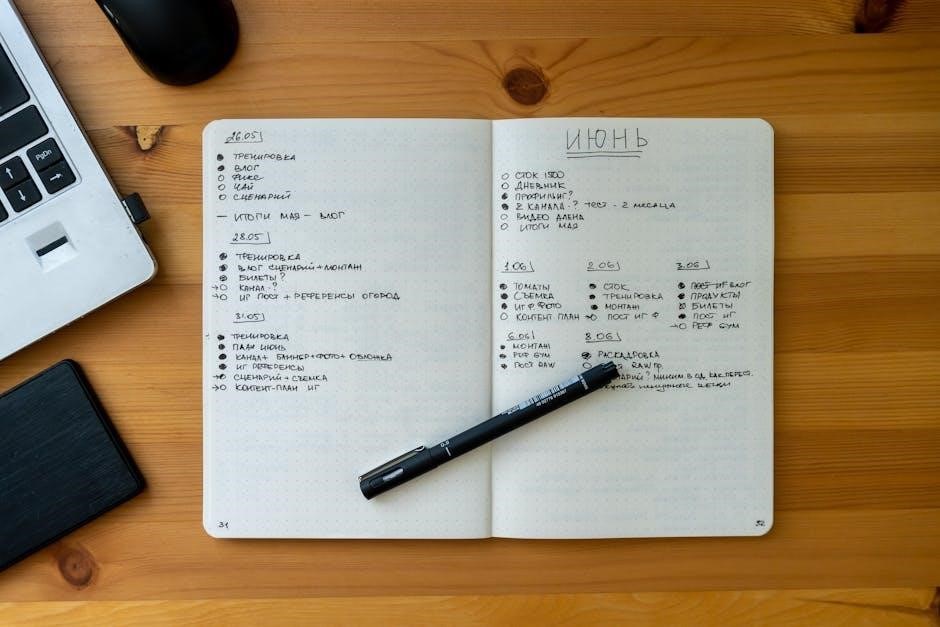 PgDn
26.05
ТРЕНИРОВКА
ВЛОГ
ФИКС
ЧАЙ
СЦЕНАРИЙ
— ИТОГИ МАЯ — ВЛОГ
28.05
ТРЕНИРОВКА
ВЛОГ СЦЕНАРИЙ + МОНТАЖ
БИЛЕТЫ?
КАНАЛ-?
ИГ ПОСТ + РЕФЕРЕНСЫ ОГОРОД
31.05
ТРЕНИРОВКА
ПЛАН ИЮНЬ
КАНАЛ + БАННЕР + ФОТО + ОБЛОЖКА
ИГ РЕФЕРЕНСЫ
СЦЕНАРИЙ + СЪЕМКА
КОНТЕНТ-ПЛАН ИГ
31
ИЮНЬ
СТОК 1500
ДНЕВНИК
ПРОФИЛЬ ИГ?
2 КАНАЛА-? ТЕСТ - 2 МЕСЯЦА
ВИДЕО АЛЕНА
ИТОГИ МАЯ
1.06
ТОМАТЫ
СЪЕМКА
ИГ Ф ФОТО
КОНТЕНТ ПЛАН
2.06
СТОК
ТРЕНИРОВКА
МОНТАЖ
ПОСТ ИГ Ф
3.06
ПОСТ ИГ ВЛОГ
ПРОДУКТЫ
БИЛЕТЫ
ПОСТ ИГ
РЕФ GYM
6.06
МОНТАЖ
РЕФ GYM
ПОСТ RAW
8.06
РАСКАДРОВКА
RAW ПР.
МИНИМ.
КАК ПЕРЕСТ.
НЕНУЖНЫЕ ВЕЩИ
32